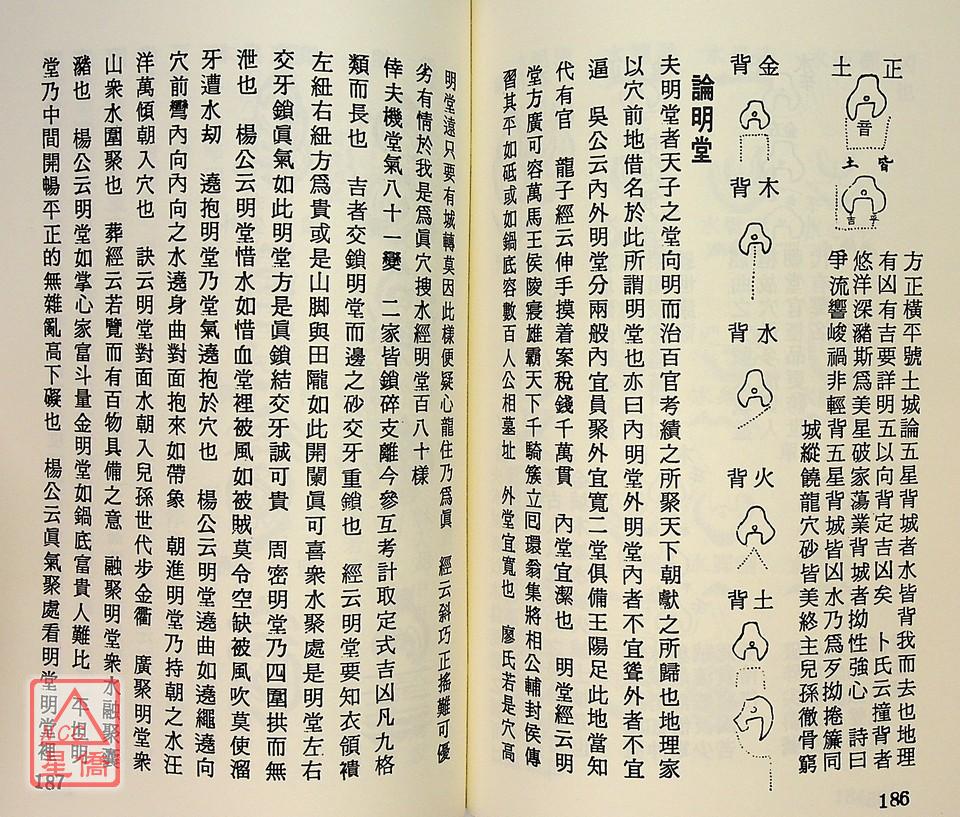 正
土
晉
背
土
吉
乎
方正橫平號土城論五星背城者水皆背我而去也地理
有凶有吉要詳明五以向背定吉凶矣　卜氏云撞背者
悠洋深瀦斯爲美星破家蕩業背城者拗性強心　詩曰
爭流響峻禍非輕背五星背城皆凶水乃爲歹拗捲簾同
城縱饒龍穴砂皆美終主兒孫徹骨窮
金
背
木
背
水
背
火
背
土
背
論明堂
夫明堂者天子之堂向明而治百官考績之所聚天下朝獻之所歸也地理家
以穴前地借名於此所謂明堂也亦曰內明堂外明堂內者不宜聳外者不宜
逼　吳公云內外明堂分兩般內宜員聚外宜寬二堂俱備王陽足此地當知
代有官　龍子經云伸手摸着案稅錢千萬貫　內堂宜潔也　明堂經云明
堂方廣可容萬馬王侯陵寢雄霸天下千騎簇立囘環翁集將相公輔封侯傳
習其平如砥或如鍋底容數百人公相墓址　外堂宜寬也　廖氏若是穴高
明堂遠只要有城轉莫因此樣便疑心龍住乃爲眞　經云斜巧正搖難可優
劣有情於我是爲眞穴搜水經明堂百八十樣
倖夫機堂氣八十一變　二家皆鎖碎支離今參互考計取定式吉凶凡九格
類而長也　吉者交鎖明堂而邊之砂交牙重鎖也　經云明堂要知衣領襀
左紐右紐方爲貴或是山脚與田隴如此開闌眞可喜衆水聚處是明堂左右
交牙鎖眞氣如此明堂方是眞鎖結交牙誠可貴　周密明堂乃四圍拱而無
泄也　楊公云明堂惜水如惜血堂裡被風如被賊莫令空缺被風吹莫使溜
牙遭水刧　遶抱明堂乃堂氣遶抱於穴也　楊公云明堂遶曲如遶繩遶向
穴前彎內向內向之水遶身曲對面抱來如帶象　朝進明堂乃持朝之水汪
洋萬傾朝入穴也　訣云明堂對面水朝入兒孫世代步金衢　廣聚明堂衆
山衆水圍聚也　葬經云若覽而有百物具備之意　融聚明堂衆水融聚囊
瀦也　楊公云明堂如掌心家富斗量金明堂如鍋底富貴人難比　平坦明
堂乃中間開暢平正的無雜亂高下礙也　楊公云眞氣聚處看明堂明堂裡
186
187
NCC
星僑